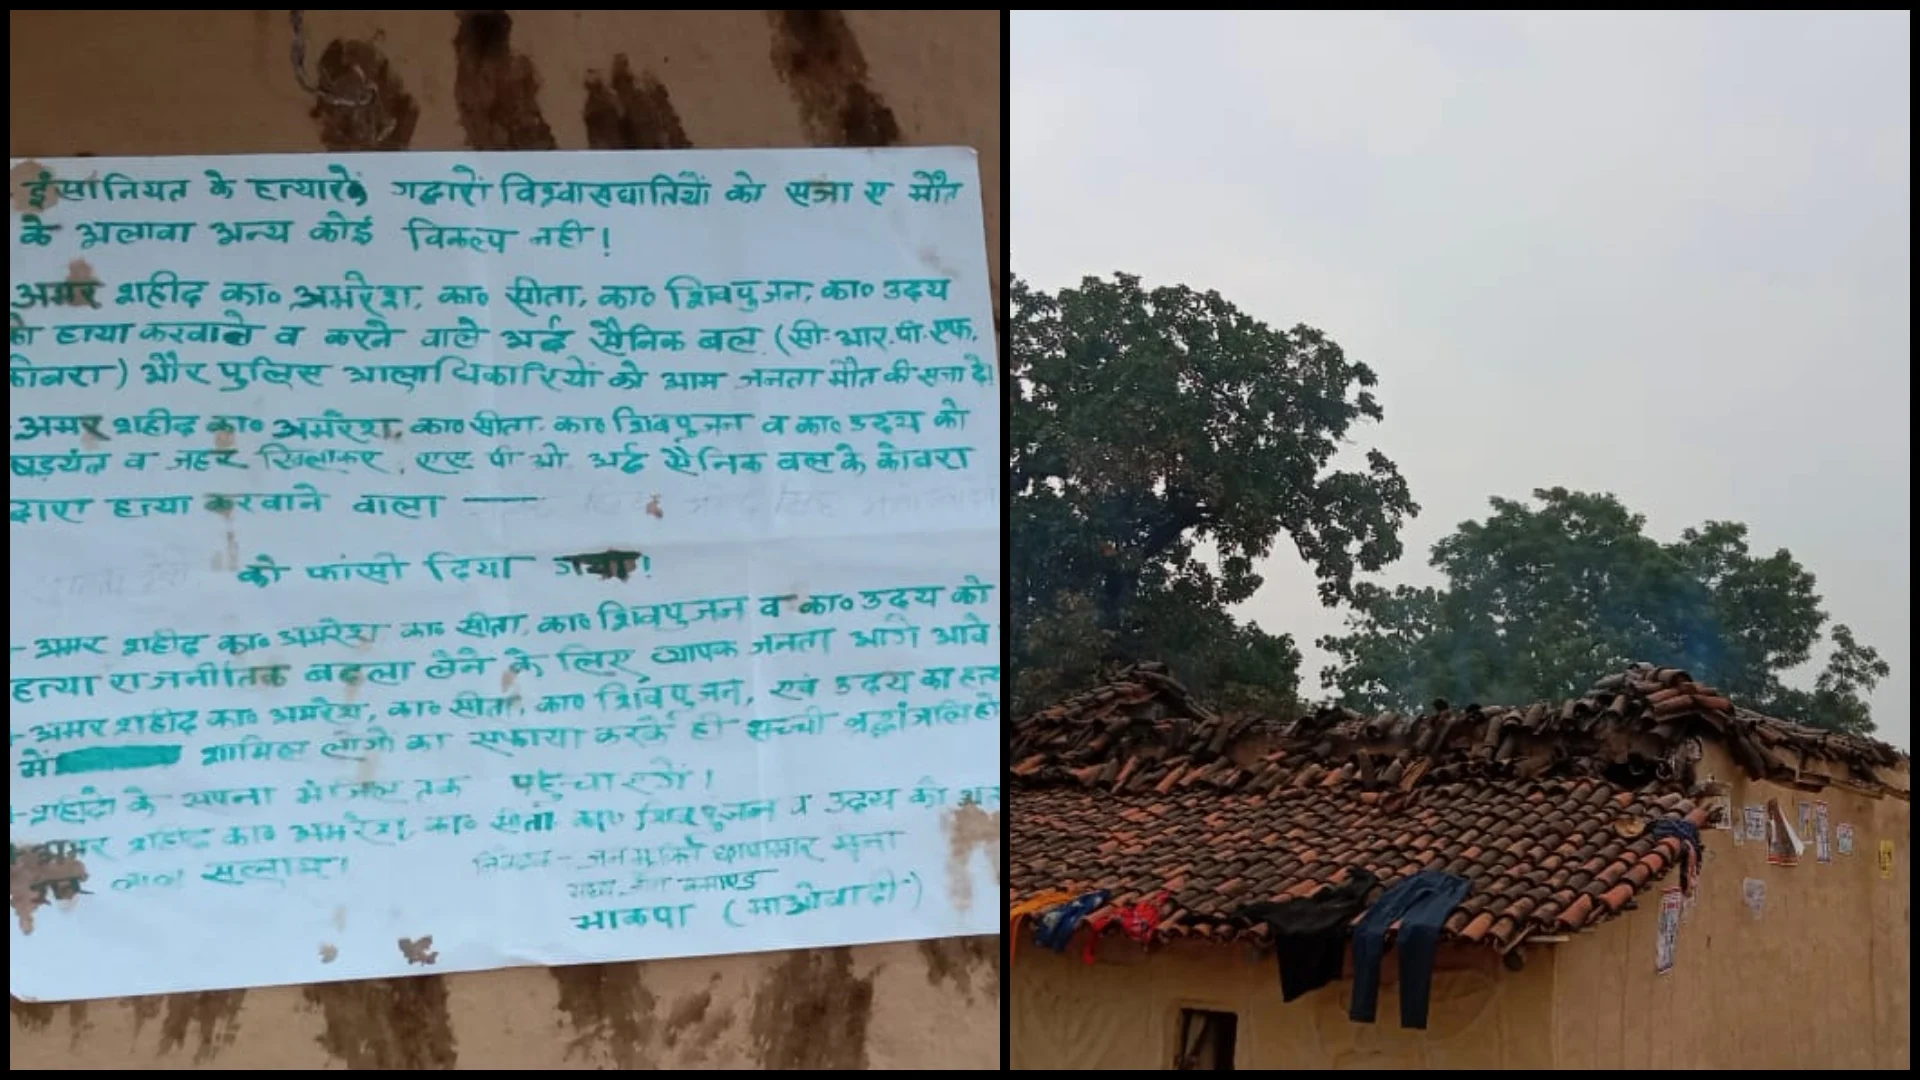 इंसानियत के हत्यारों गद्दारों विश्वासघातियों को सजा ए मौत
के अलावा अन्य कोई विकल्प नही!
अमर शहीद का० अमरेश, का० सीता, का० शिवपुजन, का० उदय
हत्या करवाने व करने वाले अर्द्ध सैनिक बल (सी.आर.पी.एफ.
कोबरा) और पुलिस आलाधिकारियों को आम जनता मौत की सजा दे!
अमर शहीद का० अमरेश, का० सीता, का० शिवपुजन व का० उदय को
षडयंत्र व जहर खिलाकर, एस पी ओ अर्द्ध सैनिक बल के कोबरा
द्वारा हत्या करवाने वाला —
को फांसी दिया गया!
- अमर शहीद का० अमरेश का० सीता, का० शिवपुजन व का० उदय को
हत्या राजनीतिक बदला लेने के लिए व्यापक जनता आगे आवे
- अमर शहीद का० अमरेश, का० सीता, का० शिवपुजन, एवं उदय का
में शामिल लोगो का सफाया करके ही सच्ची श्रद्धांजलि
- शहीदो के सपना मंजिल तक पहुंचाएगें!
अमर शहीद का० अमरेश, का० सीता का० शिवपुजन व उदय को
लाल सलाम!
निवेदक - जन मुक्ति छापामार सेना
भाकपा (माओवादी)